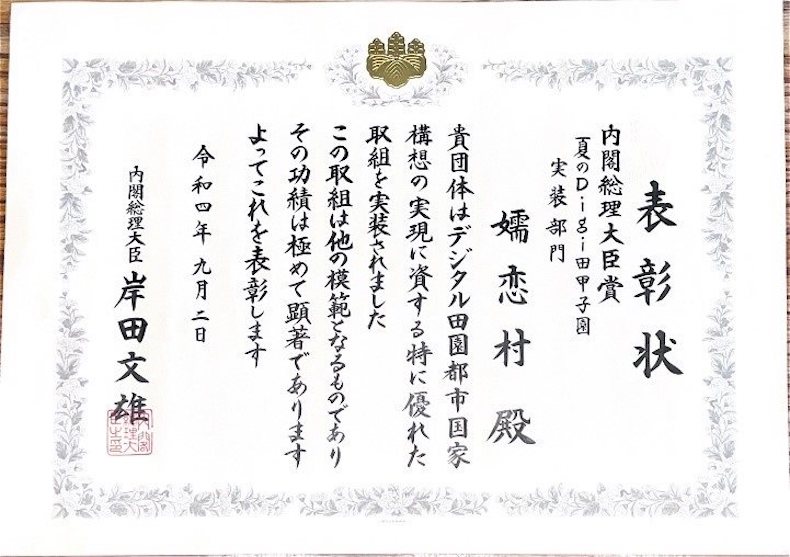 表彰状
内閣総理大臣賞
夏のDigi田甲子園
実装部門
嬬恋村殿
貴団体はデジタル田園都市国家
構想の実現に資する特に優れた
取組を実装されました
この取組は他の模範となるものであり
その功績は極めて顕著であります
よってこれを表彰します
令和四年九月二日
内閣総理大臣 岸田文雄